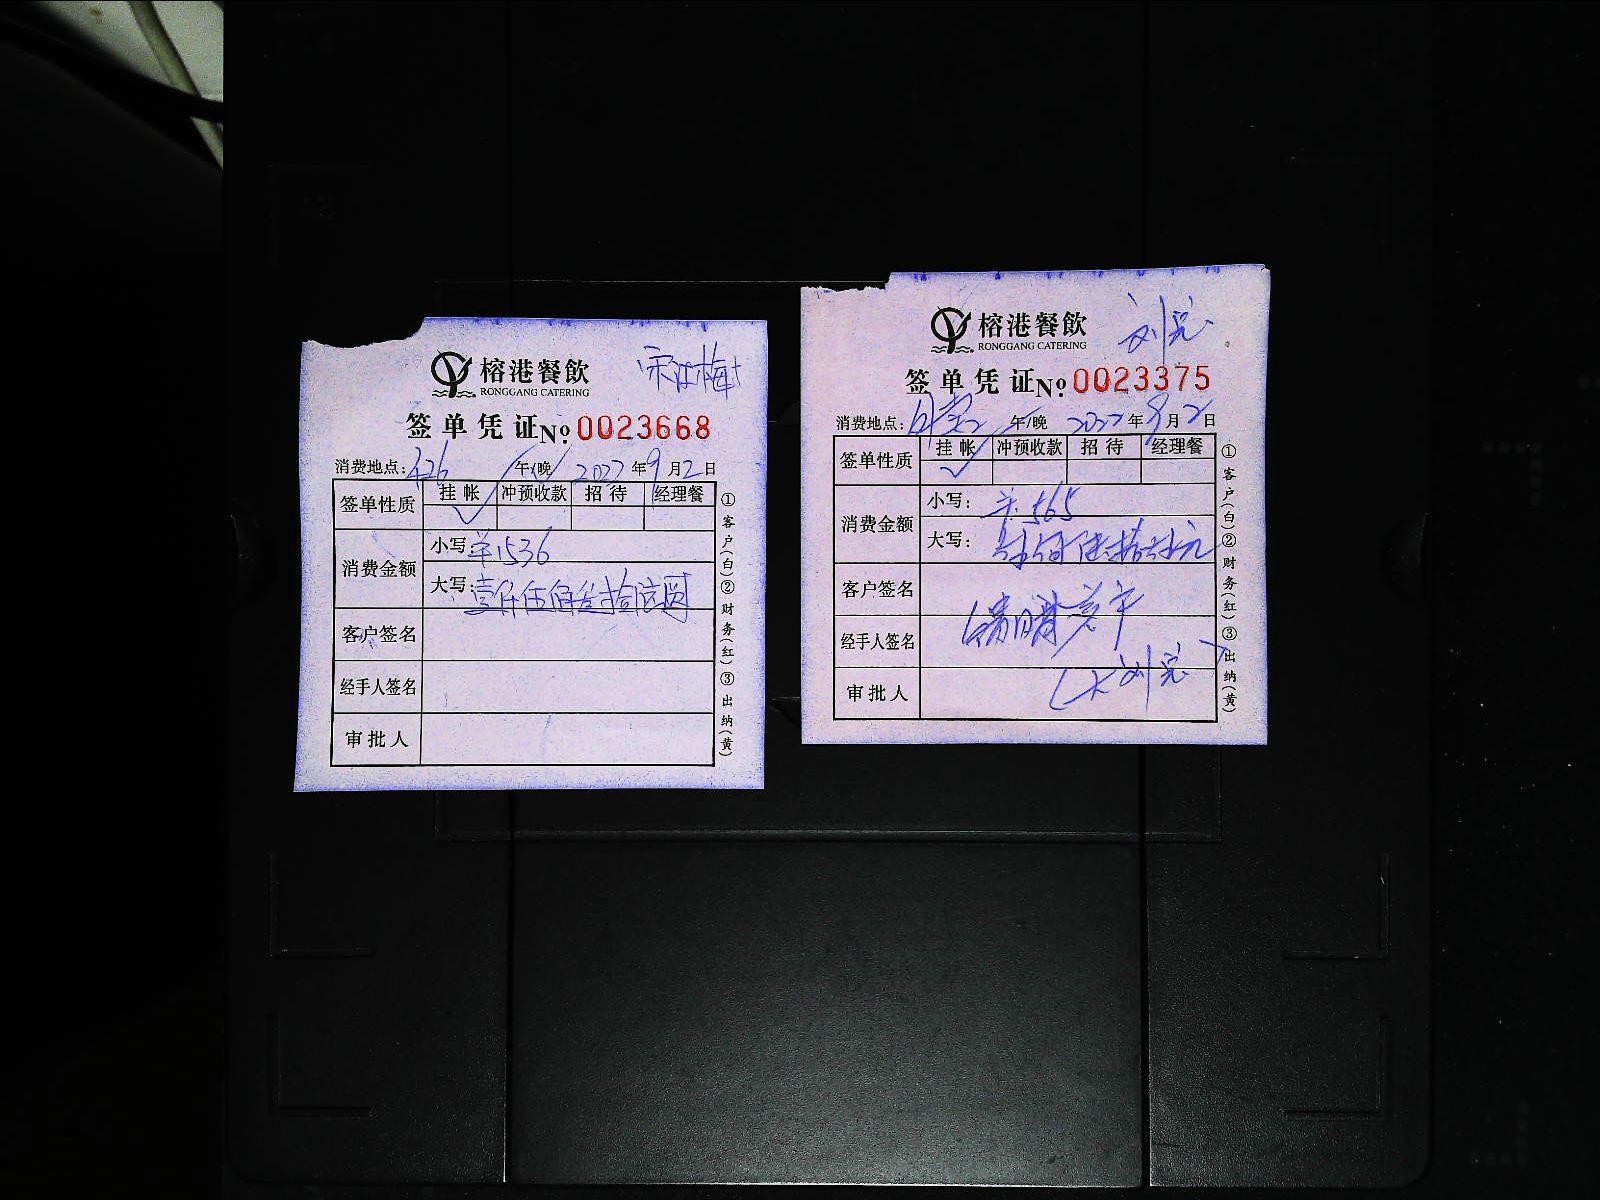 榕港餐飲
RONGGANG CATERING
宋江梅
签单凭证№:0023668
消费地点:426 午/晚 2022年9月2日
签单性质 挂帐 冲预收款 招待 经理餐
消费金额
小写:1536
大写:壹仟伍佰叁拾陆圆
客户签名
经手人签名
审批人
①客户(白)②财务(红)③出纳(黄)
榕港餐飲
RONGGANG CATERING
刘总
签单凭证№:0023375
消费地点: 午/晚 2022年9月2日
签单性质 挂帐 冲预收款 招待 经理餐
消费金额
小写:565
大写:
客户签名
经手人签名
刘总
审批人
①客户(白)②财务(红)③出纳(黄)